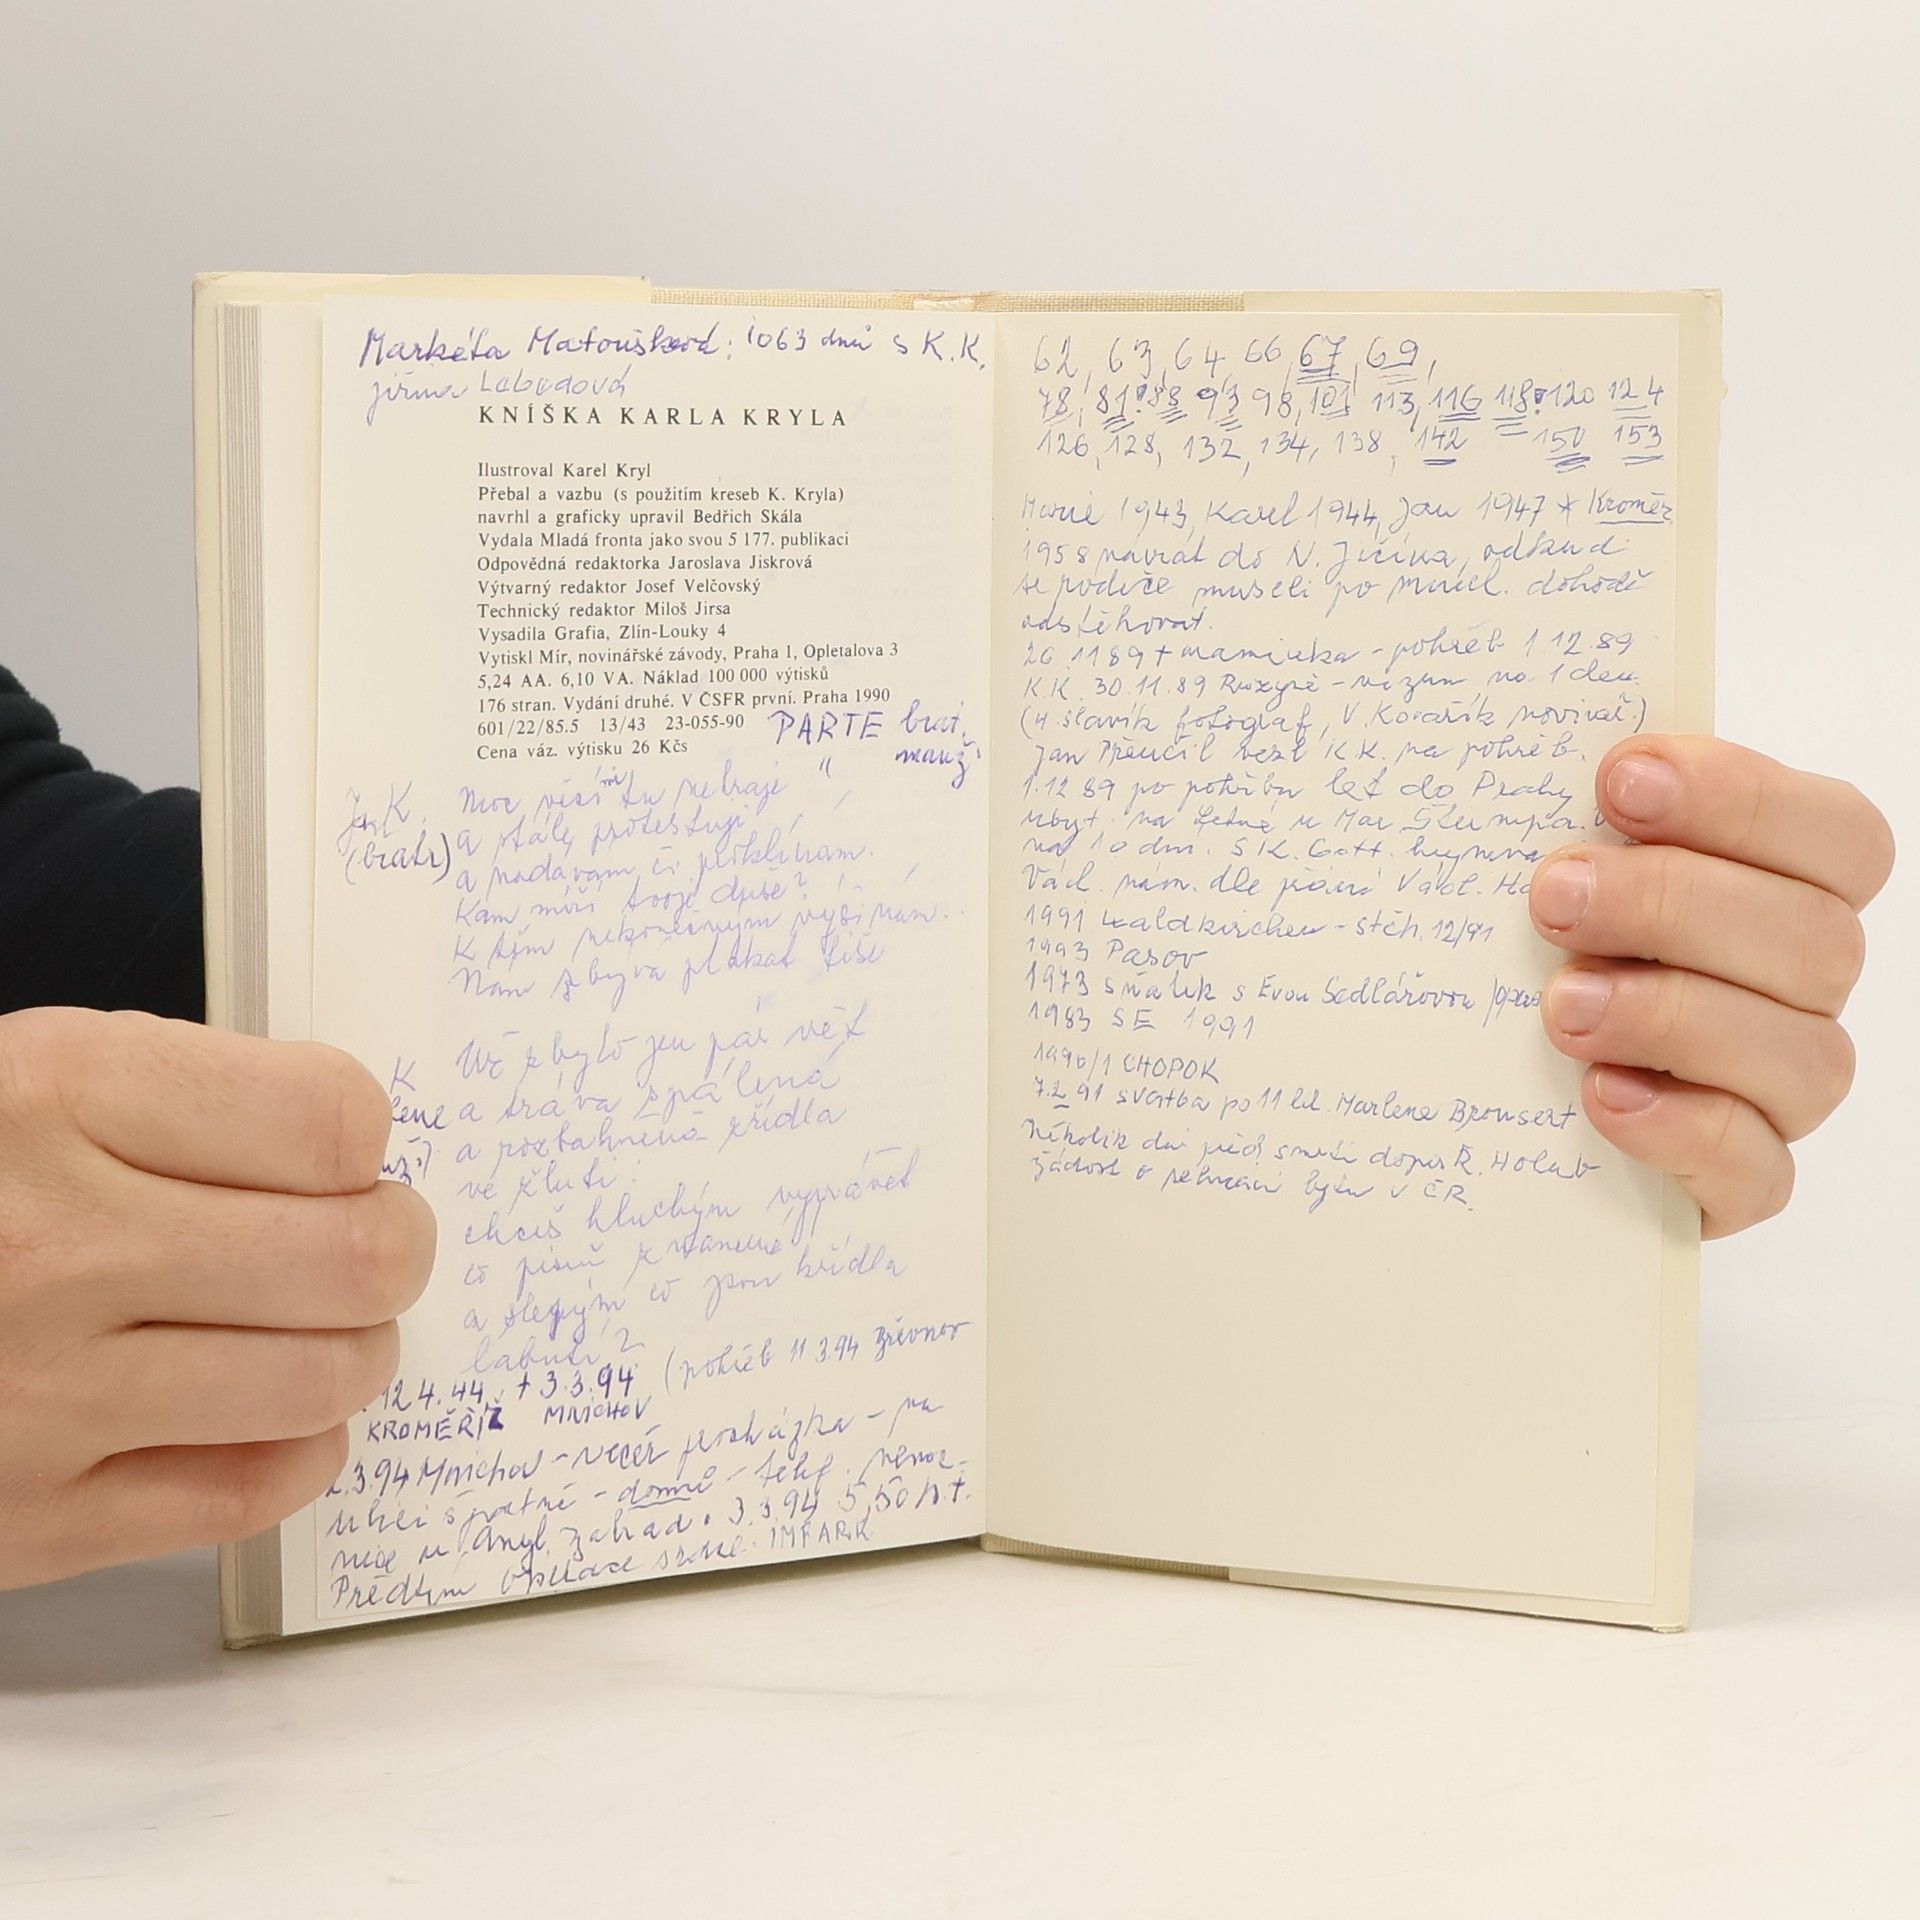 Markéta Matoušková: 1063 dnů s K.K.
Jiřina Lebedová
KNÍŠKA KARLA KRYLA
Ilustroval Karel Kryl
Přebal a vazbu (s použitím kreseb K. Kryla)
navrhl a graficky upravil Bedřich Skála
Vydala Mladá fronta jako svou 5 177. publikaci
Odpovědná redaktorka Jaroslava Jiskrová
Výtvarný redaktor Josef Velčovský
Technický redaktor Miloš Jirsa
Vysadila Grafia, Zlín-Louky 4
Vytiskl Mír, novinářské závody, Praha 1, Opletalova 3
5,24 AA. 6,10 VA. Náklad 100 000 výtisků
176 stran. Vydání druhé. V ČSFR první. Praha 1990
601/22/85.5 13/43 23-055-90
Cena váz. výtisku 26 Kčs
PARTE bratr,
" manž.
Jan K. Moc věcí mi tu nehraje
(bratr) a stále protestuji
a nadávám či proklínám.
Kam míří tvoje duše?
K těm nekonečným výšinám..
Nám zbývá plakat tiše
K Už zbylo jen pár vět
lene a tráva spálená
a roztahnená křídla
ve žluti:
chceš hluchým vyprávět
co písní znamená
a slepým co jsou křídla
labutí?
12.4.44, + 3.3.94 (pohřeb 11.3.94 Břevnov
KROMĚŘÍŽ MNICHOV
2.3.94 Mnichov - večer procházka - na
ulici špatně - domů - telef. nemoc-
nice u Angl. zahrad. 3.3.94 5,50 h. +.
Předtím operace srdce. INFARK
62, 63, 64, 66, 67, 69,
78, 81! 88 93 98, 101 113, 116 118! 120 124
126, 128, 132, 134, 138, 142 150 153
Marie 1943, Karel 1944, Jan 1947 * Kroměř.
1958 návrat do N. Jičína, odkud
se rodiče museli po Mnich. dohodě
odstěhovat.
20.11 89 + maminka - pohřeb 1.12.89
K.K. 30.11.89 Ruzyně - vízum na 1 den.
(H. Slavík fotograf, V. Kovařík novinář.)
Jan Přeučil vezl K.K. na pohřeb.
1.12 89 po pohřbu let do Prahy
ubyt. na Letné u Mar. Štumpa.
na 10 dní. S K. Gott. hymna
Václ. nám. dle přání Václ. Ha
1991 Waldkirchen - stěh. 12/91
1993 Pasov
1973 sňatek s Evou Sedlářovou
1983 SE 1991
1990/1 CHOPOK
7.2 91 svatba po 11 l. Marlene Bronsert
Několik dní před smrtí dopis R. Holub
žádost o bytu v ČR.